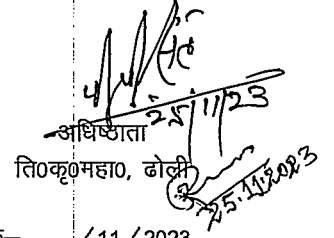 25/11/23
अधिष्ठाता
ति0कृ0महा0, ढोली
25.11.2023
/11/2023